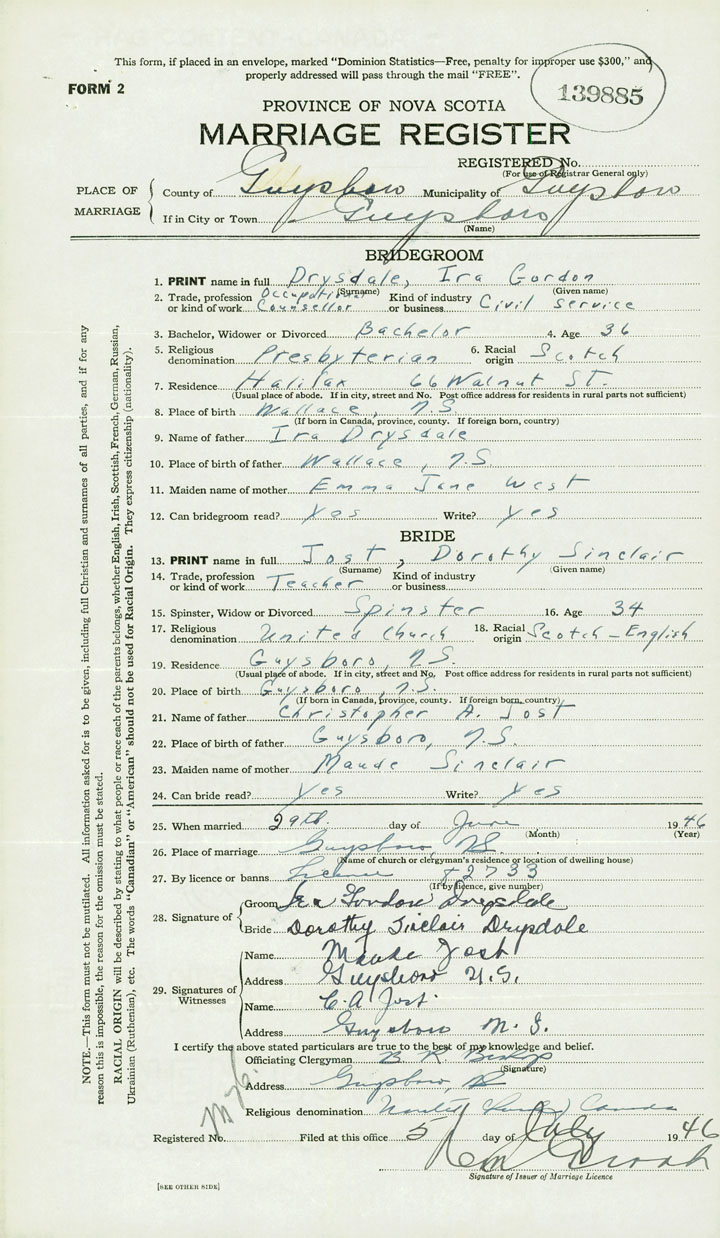 This form, if placed in an envelope, marked "Dominion Statistics—Free, penalty for improper use $300," and
properly addressed will pass through the mail "FREE".
FORM 2
139885
PROVINCE OF NOVA SCOTIA
MARRIAGE REGISTER
REGISTERED No.
(For use of Registrar General only)
PLACE OF MARRIAGE
County of Guysboro Municipality of Guysboro
If in City or Town Guysboro
(Name)
BRIDEGROOM
1. PRINT name in full Drysdale, Ira Gordon
(Surname) (Given name)
2. Trade, profession or kind of work Occupational Counsellor Kind of industry or business Civil Service
3. Bachelor, Widower or Divorced Bachelor 4. Age 36
5. Religious denomination Presbyterian 6. Racial origin Scotch
7. Residence Halifax 66 Walnut St.
(Usual place of abode. If in city, street and No. Post office address for residents in rural parts not sufficient)
8. Place of birth Wallace, N.S.
(If born in Canada, province, county. If foreign born, country)
9. Name of father Ira Drysdale
10. Place of birth of father Wallace, N.S.
11. Maiden name of mother Emma Jane West
12. Can bridegroom read? Yes Write? Yes
BRIDE
13. PRINT name in full Jost, Dorothy Sinclair
(Surname) (Given name)
14. Trade, profession or kind of work Teacher Kind of industry or business
15. Spinster, Widow or Divorced Spinster 16. Age 34
17. Religious denomination United Church 18. Racial origin Scotch-English
19. Residence Guysboro, N.S.
(Usual place of abode. If in city, street and No. Post office address for residents in rural parts not sufficient)
20. Place of birth Guysboro, N.S.
(If born in Canada, province, county. If foreign born, country)
21. Name of father Christopher A. Jost
22. Place of birth of father Guysboro, N.S.
23. Maiden name of mother Maude Sinclair
24. Can bride read? Yes Write? Yes
25. When married 29th. day of June 1946
(Month) (Year)
26. Place of marriage Guysboro, NS
(Name of church or clergyman's residence or location of dwelling house)
27. By licence or banns Licence 2733
(If by licence, give number)
28. Signature of
Groom Ira Gordon Drysdale
Bride Dorothy Sinclair Drysdale
29. Signatures of Witnesses
Name Maude Jost
Address Guysboro N.S.
Name C.A Jost.
Address Guysboro N.S.
I certify the above stated particulars are true to the best of my knowledge and belief.
Officiating Clergyman B R. Bishop
(Signature)
Address Guysboro, NS
Religious denomination United Church Canada
Registered No. Filed at this office 5 day of July 1946
Signature of Issuer of Marriage Licence
[SEE OTHER SIDE]
NOTE.—This form must not be mutilated. All information asked for is to be given, including full Christian and surnames of all parties, and if for any
reason this is impossible, the reason for the omission must be stated.
RACIAL ORIGIN will be described by stating to what people or race each of the parents belongs, whether English, Irish, Scottish, French, German, Russian,
Ukrainian (Ruthenian), etc. The words "Canadian" or "American" should not be used for Racial Origin. They express citizenship (nationality).